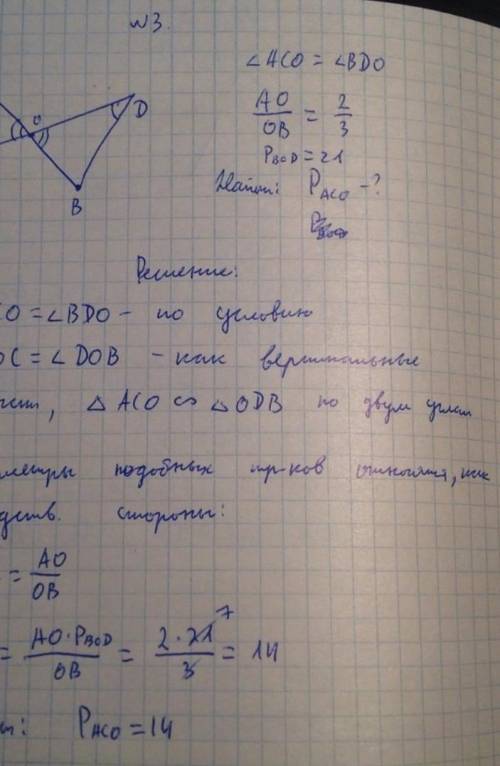 №3.
∠ACO = ∠BDO
AO/OB = 2/3
P_BOD = 21
Найти: P_ACO - ?
O
D
B
Решение:
CO = ∠BDO - по условию
OC = ∠DOB - как вертикальные
, △ ACO ∾ △ ODB по двум углам
метры подобных тр-ков относятся, как
дств. стороны:
= AO/OB
= AO·P_BOD/OB = 2·21/3 = 14
7
т: P_ACO = 14